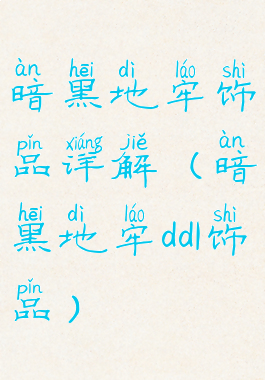 àn hēi dì láo shì
暗黑地牢饰
pǐn xiáng jiě àn
品详解（暗
hēi dì láo shì
黑地牢ddl饰
pǐn
品）